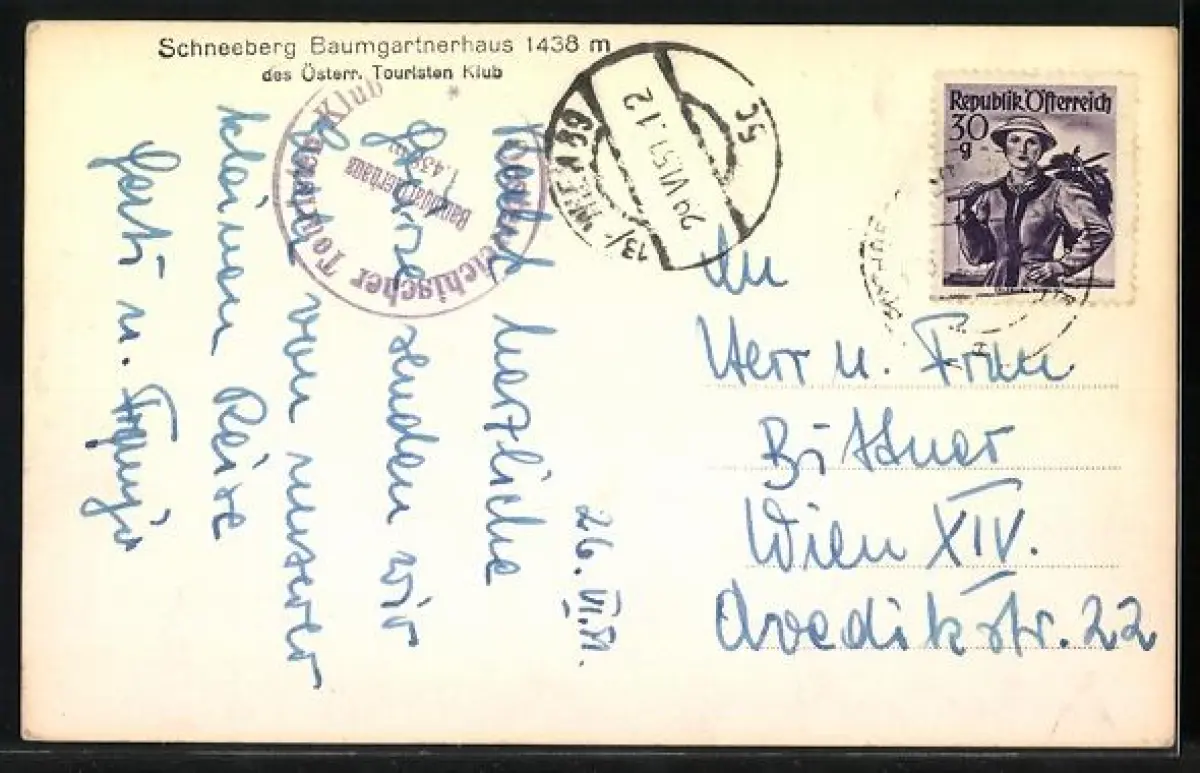 Schneeberg Baumgartnerhaus 1438 m
des Österr. Touristen Klub
Österreichischer Touristen-Klub
Baumgartnerhaus
1.438 m
WIEN 89
29.VI.51.12
5c
Republik Österreich
30
g
26. VI. 51.
Recht herzliche
Grüsse senden wir
Euch von unserer
kleinen Reise
Gerti u.
An
Herr u. Frau
Bittner
Wien XIV.
Avedikstr. 22